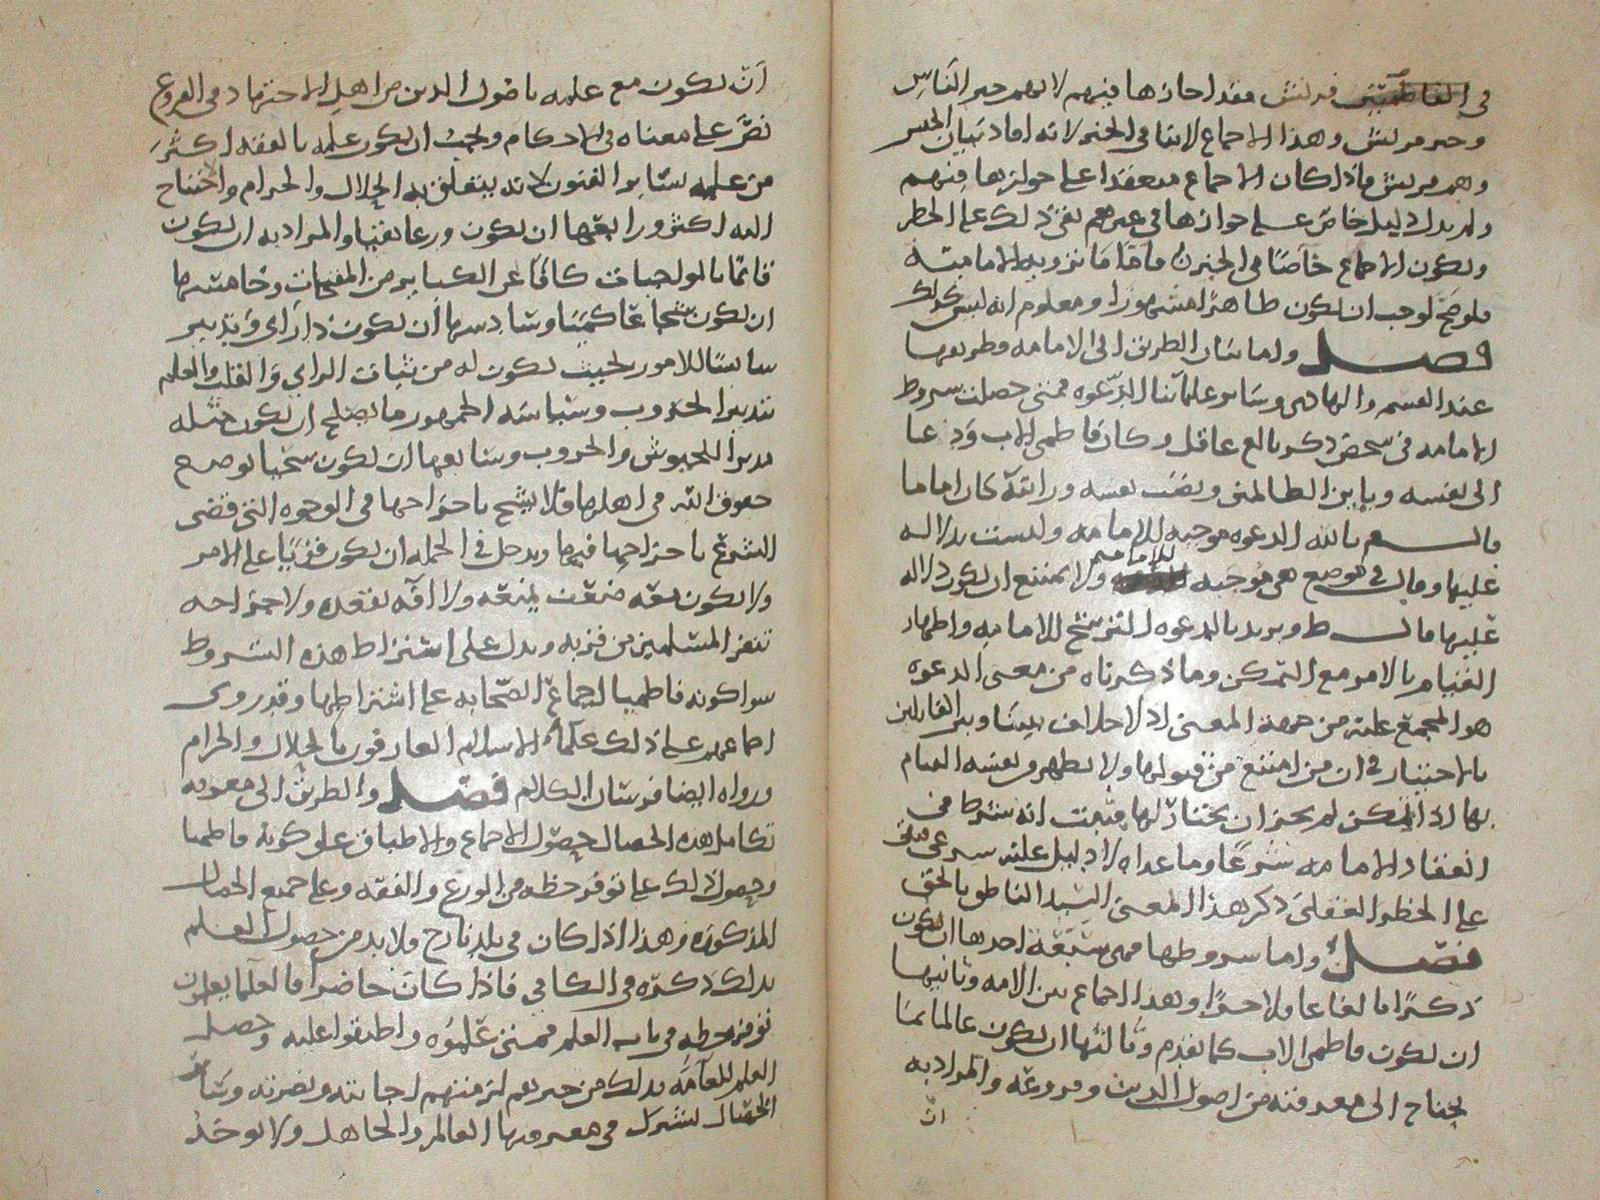 في الفاطميين قريش فقد اجازها فيهم لانهم خير الناس
وخير قريش وهذا الاجماع لا ينافي الخبر لانه افاد بيان الجنس
وهم قريش فاذا كان الاجماع منعقدا على جوازها فيهم
ولم يدل دليل خاص على جوازها في غيرهم بقي ذلك على الحظر
ويكون الاجماع خاصا في الخبرين فاما ما ترويه الامامية
فلو صح لوجب ان يكون ظاهرا مشهورا ومعلوم انه ليس كذلك
فصل واما بيان الطريق الى الامامة وطريقها
عند القسم والهادي وسائر علمائنا الدعوة فمتى حصلت شروط
الامامة في شخص ذكر بالغ عاقل وكان فاطمي الاب ودعا
الى نفسه وباين الظالمين ونصب نفسه ورايته كان اماما
قال السيد م بالله الدعوة موجبة للامامة وليست بدلالة
عليها وقال في موضع هي موجبة للامامة ولا يمتنع ان يكون دلالة
عليها قال السيد ط ويريد بالدعوة الترشح للامامة واظهار
القيام بالامر مع التمكن وما ذكرناه من معنى الدعوة
هو المجمع عليه من جهة المعنى اذ لا خلاف بيننا وبين القائلين
بالاختيار في ان من امتنع من قبولها ولا يظهر من نفسه القيام
بها اذا تمكن لم يجز ان يختار لها فثبت انه شرط في
انعقاد الامامة شرعا وما عداه لا دليل عليه شرعي فبقي
على الحظر العقلي ذكر هذا المعنى السيد الناطق بالحق
فصل واما شروطها فهي سبعة احدها ان يكون
ذكرا بالغا عاقلا حرا وهذا اجماع بين الامة وثانيها
ان يكون فاطمي الاب كما تقدم وثالثها ان يكون عالما بما
يحتاج الى معرفته من اصول الدين وفروعه والمراد به
ان
ان يكون مع علمه باصول الدين من اهل الاجتهاد في الفروع
نص على معناه في الاحكام ويجب ان يكون علمه بالفقه اكثر
من علمه بسائر الفنون لانه يتعلق به الحلال والحرام والحتاج
اليه اكثر ورابعها ان يكون ورعا تقيا والمراد به ان يكون
قائما بالواجبات كافا عن الكبائر من المقبحات وخامسها
ان يكون شجاعا كميا وسادسها ان يكون ذا راي وتدبير
سائسا للامور بحيث يكون له من ثبات الراي والقلب والعلم
بتدبير الحروب وسياسة الجمهور ما يصلح ان يكون مثله
مدبرا للجيوش والحروب وسابعها ان يكون سخيا بوضع
حقوق الله في اهلها فلا يشح باخراجها في الوجوه التي قضى
الشرع باخراجها فيها ويدخل في الجملة ان يكون قويا على الامر
ولا يكون معه ضعف يمنعه ولا افة تقعده ولا جراحة
تنفر المسلمين من قربه ويدل على اشتراط هذه الشروط
سوا كونه فاطميا اجماع الصحابة على اشتراطها وقد روى
اجماعهم على ذلك علماء الاسلام العارفون بالحلال والحرام
ورواه ايضا فرسان الكلام فصل والطريق الى معرفة
تكامل هذه الخصال حصول الاجماع والاطباق على كونه فاطميا
وحصول ذلك على توفر حظه من الورع والفقه وعلى جميع الخصال
المذكورة وهذا اذا كان في بلد نازح ولا بد من حصول العلم
بذلك ذكره في الكافي فاذا كان حاضرا فالعلما يعلمون
توفر حظه في باب العلم فمتى علموه واطبقوا عليه وحصل
العلم للعامة بذلك من خبرهم لزمتهم اجابته ونصرته وسائر
الخصال يشترك في معرفتها العالم والجاهل ولا يوخذ